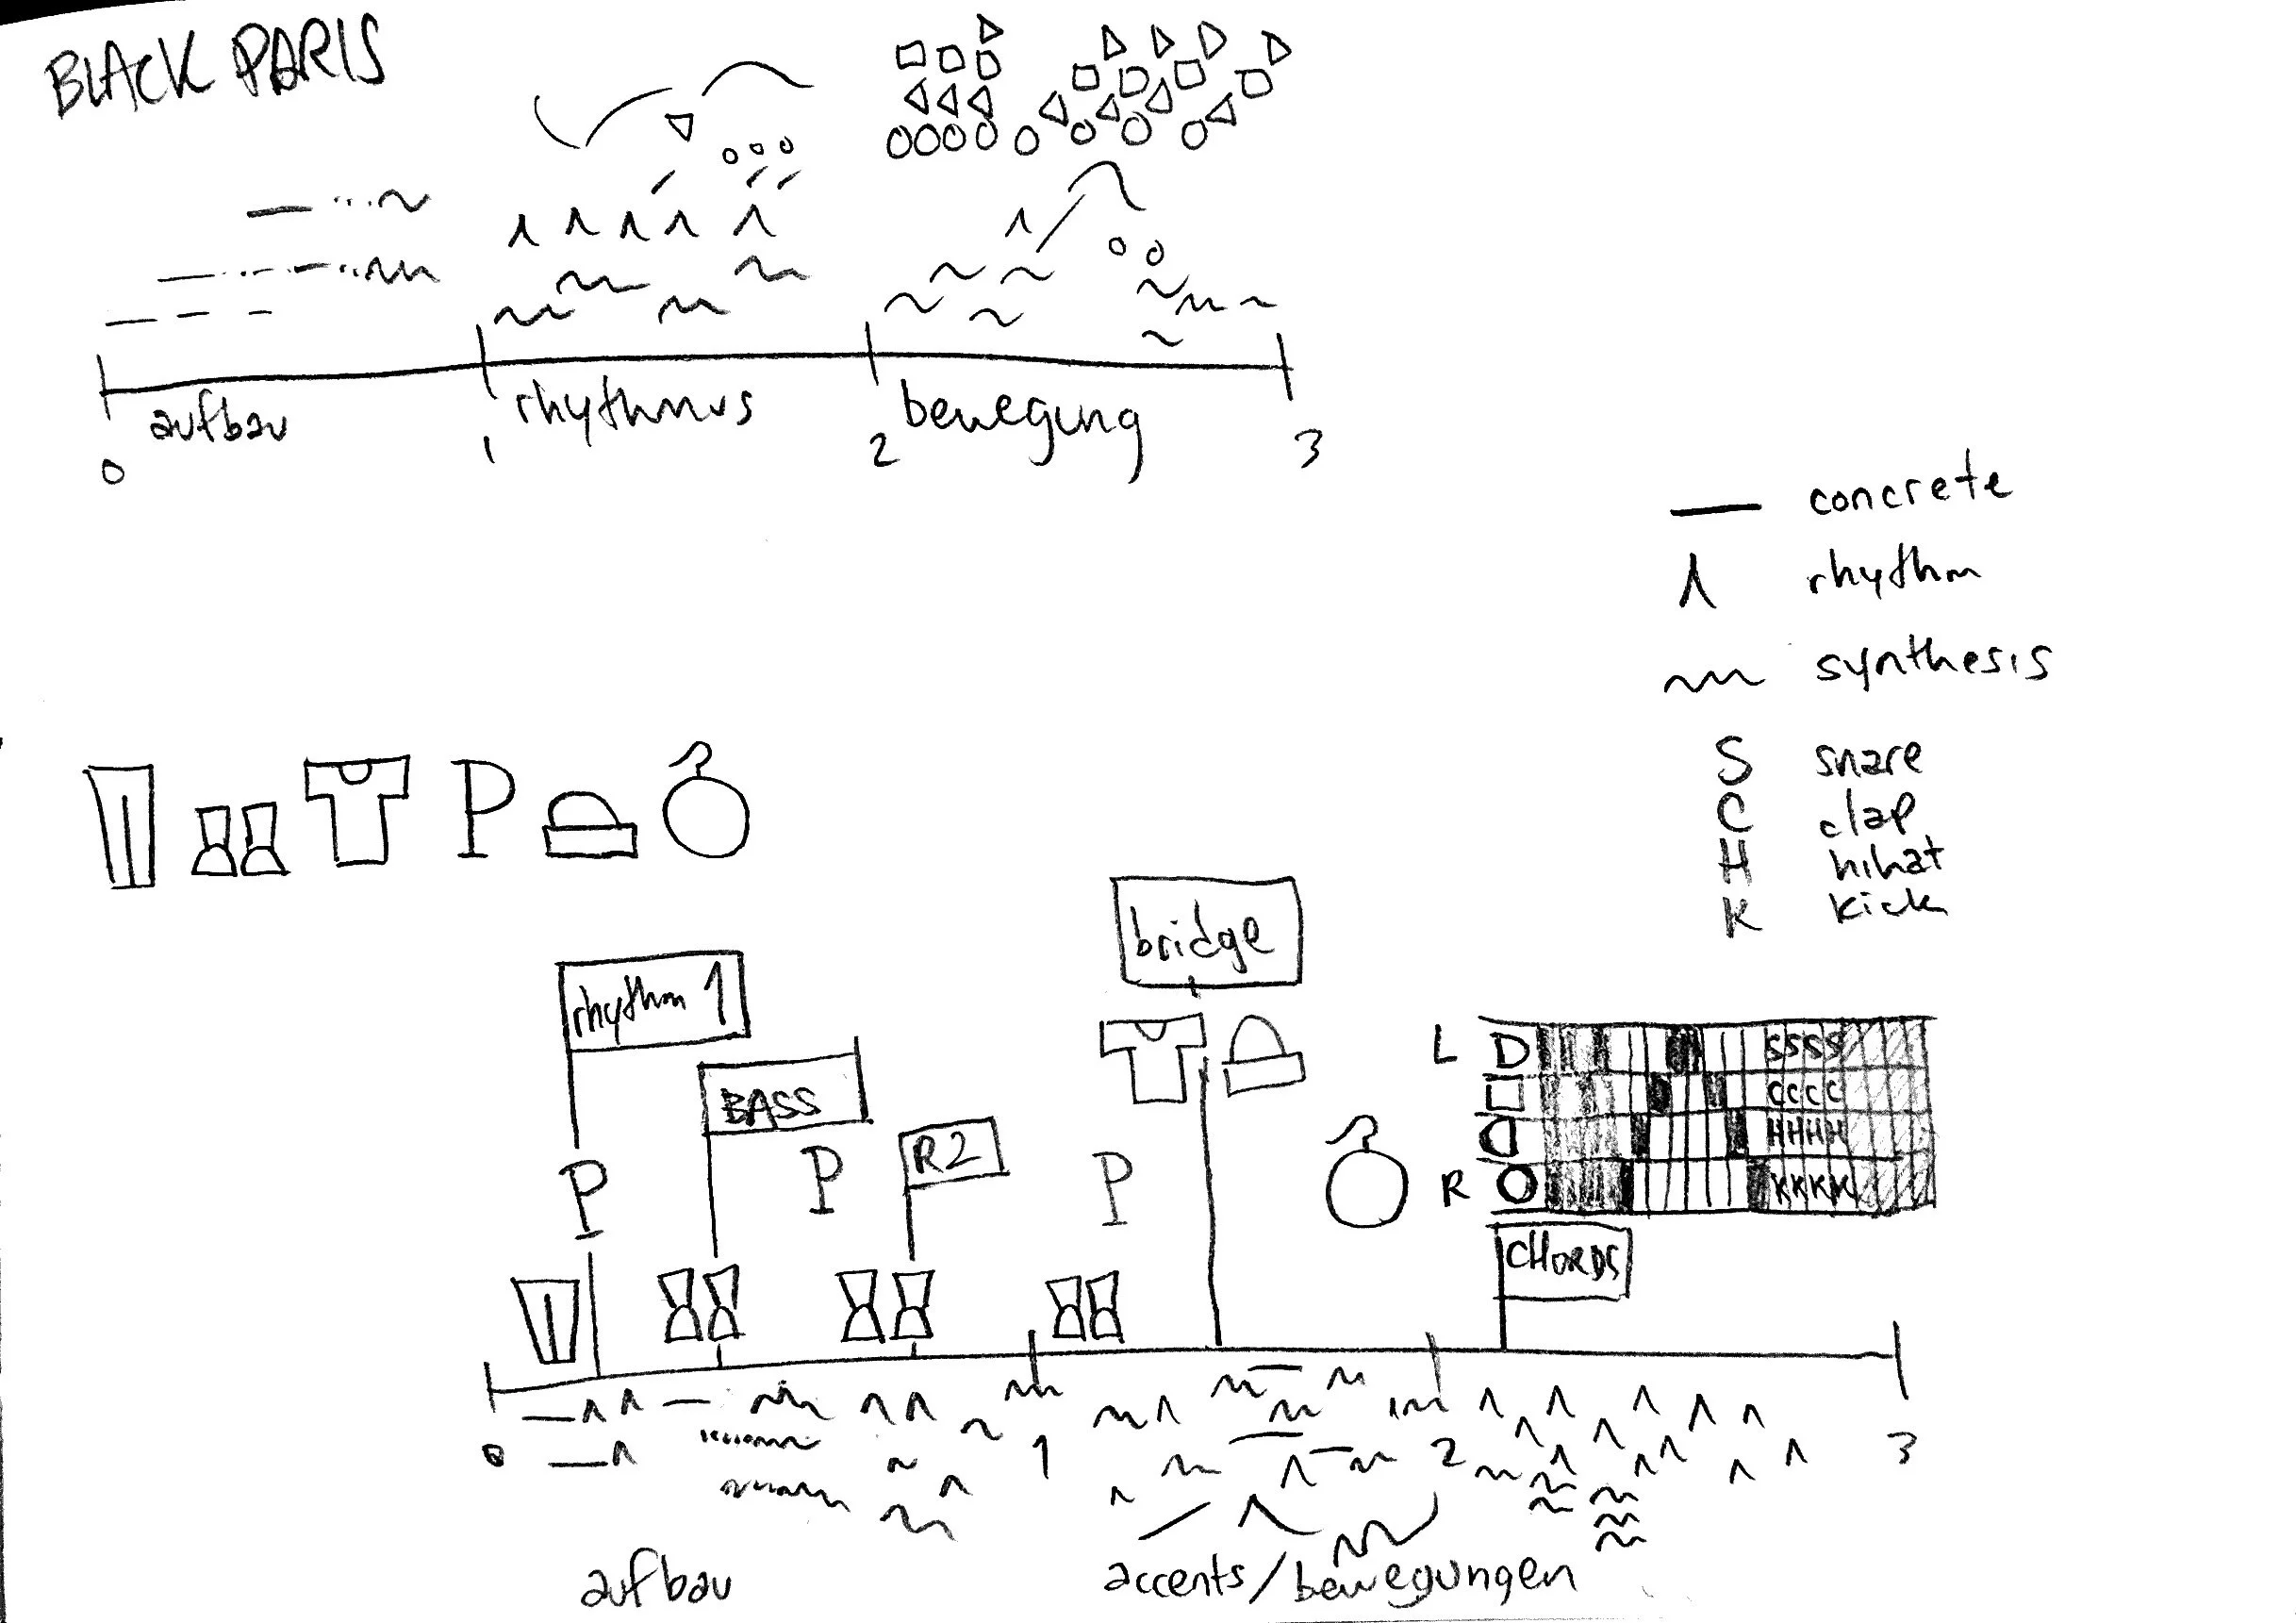 BLACK PARIS
aufbau
rhythmus
bewegung
0
1
2
3
concrete
rhythm
synthesis
S snare
C clap
H hihat
K kick
P
bridge
rhythm 1
BASS
R2
P
P
P
L D SSSS
CCCC
HHHH
R O KKKK
CHORDS
0
1
2
3
aufbau
accents/bewegungen